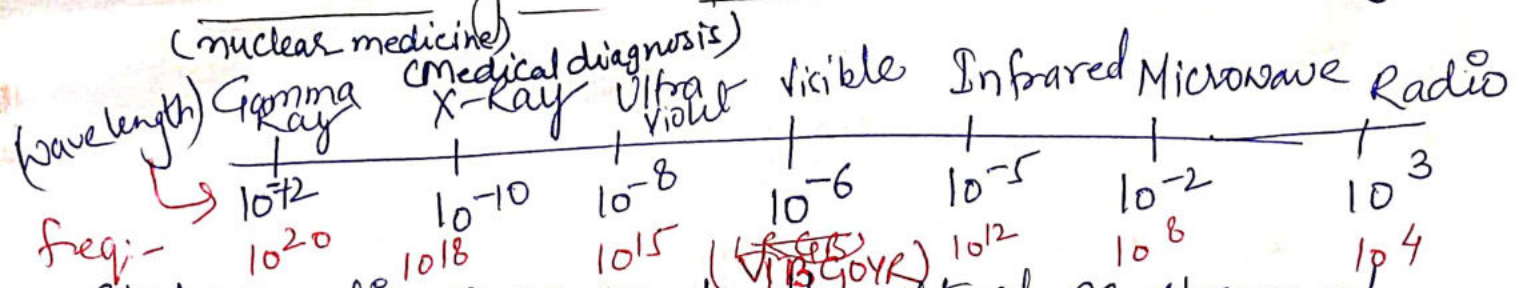 (nuclear medicine)
(Medical diagnosis)
(wavelength) Gamma Ray X-Ray Ultra Violet Vicible Infrared Microwave Radio
10^-12 10^-10 10^-8 10^-6 10^-5 10^-2 10^3
freq:- 10^20 10^18 10^15 (VIBGOYR) 10^12 10^8 10^4